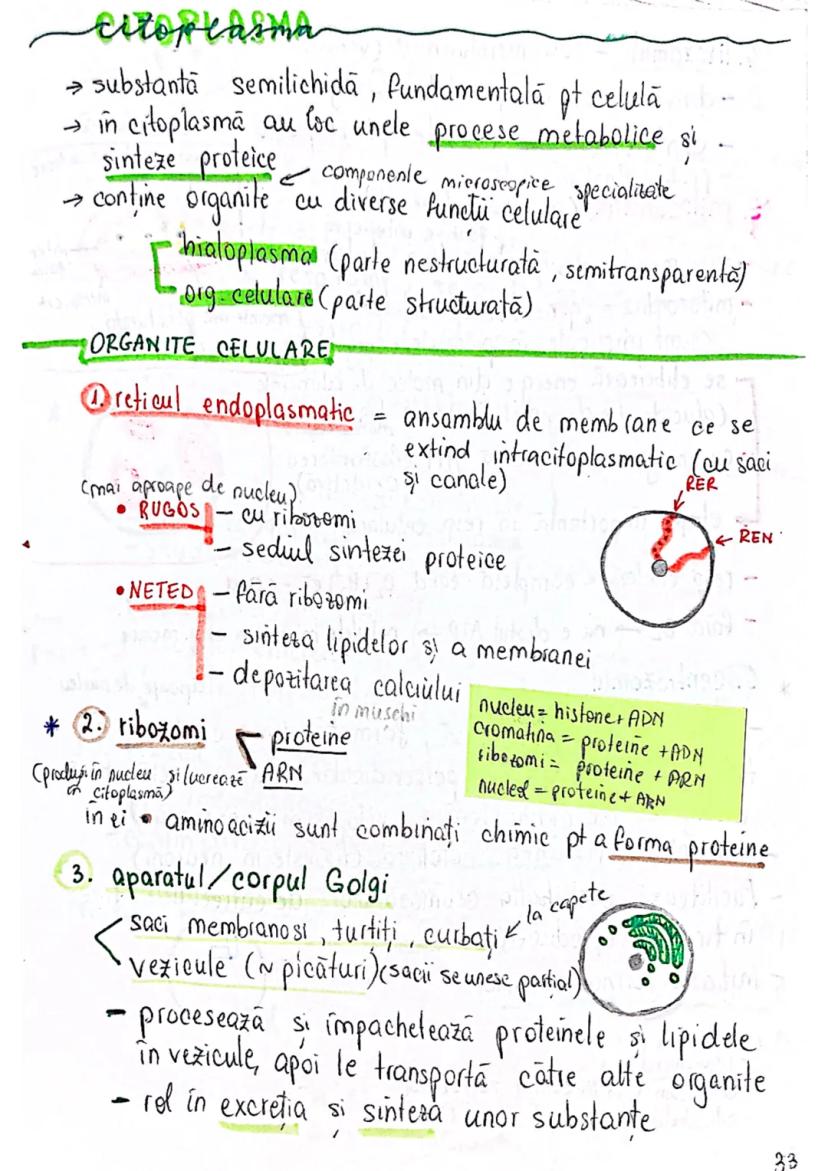 CITOPLASMA
citoplasma
→ substanță semilichidă, fundamentală pt celulă
→ în citoplasmă au loc unele procese metabolice și
sinteze proteice
componente microscopice specializate
→ conține organite cu diverse funcții celulare
hialoplasma (parte nestructurată, semitransparentă)
org. celulare (parte structurată)
ORGANITE CELULARE
1. reticul endoplasmatic = ansamblu de membrane ce se
extind intracitoplasmatic (cu saci
și canale)
(mai aproape de nucleu)
RER
REN
• RUGOS - cu ribozomi
- sediul sintezei proteice
• NETED - fără ribozomi
- sinteza lipidelor și a membranei
- depozitarea calciului
în mușchi
nucleu = histone + ADN
cromatina = proteine + ADN
ribozomi = proteine + ARN
nucleol = proteine + ARN
* 2. ribozomi
proteine
ARN
(produși în nucleu și lucrează
în citoplasmă)
în ei • aminoacizii sunt combinați chimic pt a forma proteine
3. aparatul/corpul Golgi
saci membranosi, turtiți, curbați
la capete
vezicule (~ picături) (sacii se unesc parțial)
- procesează și împachetează proteinele și lipidele
în vezicule, apoi le transportă către alte organite
- rol în excreția și sinteza unor substanțe
33